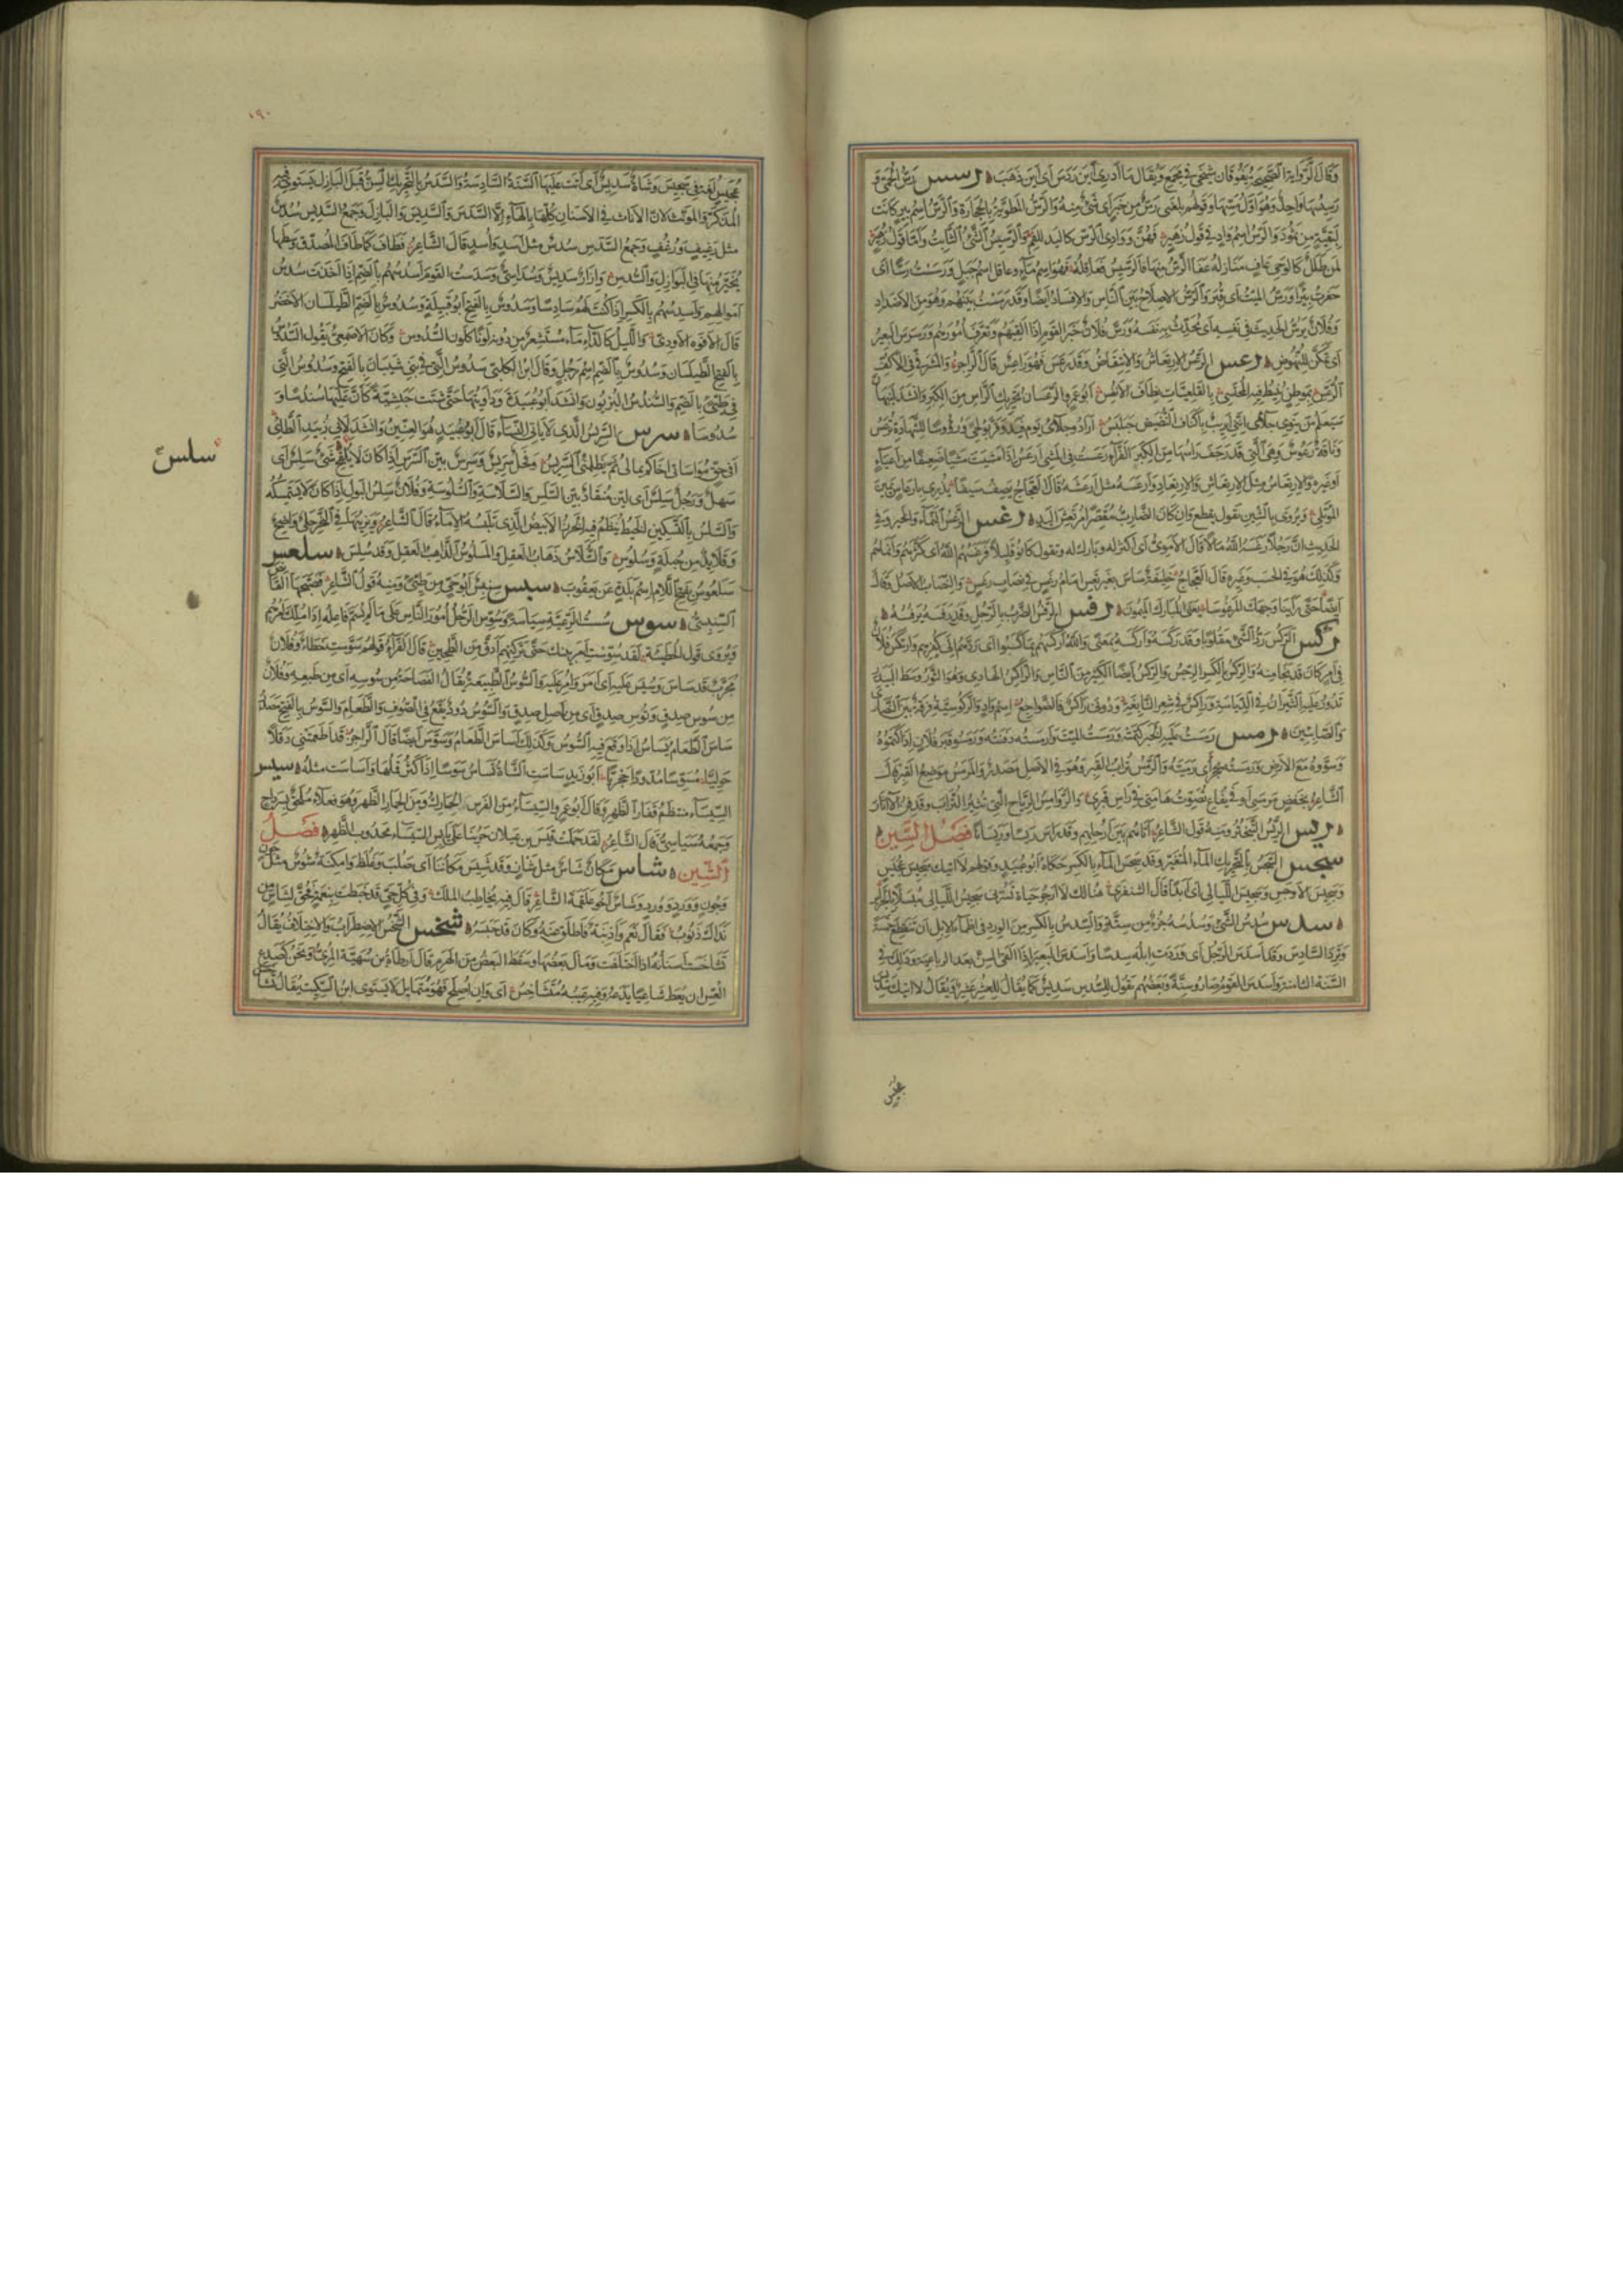 وقال الرواية الصحيحة يفوقان شيخي في مجمع ويقال ما أدري أين ردس أي أين ذهب رسس رس الحمى و
رسيسها واحد وهو أول مسها وقولهم بلغني رس من خبر أي شيء منه والرس المطوية بالحجارة والرس اسم بير كانت
لبقية من ثمود والرس اسم واد في قول زهير فهن ووادي الرس كاليد للفم والرسيس الشيء الثابت وأما قول زهير
لمن طلل كالوحي عاف منازله عفا الرس منها فالرسيس فعاقله فهو اسم ماء وعاقل اسم جبل ورسست رسا أي
حفرت بيرا ورس الميت أي قبر والرس الإصلاح بين الناس والإفساد أيضا وقد رسست بينهم وهو من الأضداد
وفلان يرس الحديث في نفسه أي يحدث به نفسه ورس فلان خبر القوم إذا لقيهم وتعرف أمورهم ورسرس البعير
أي تمكن للنهوض رعس الرعس الارتعاش والانتفاض وقد رعس فهو راعس قال الراجز والمشرفي في الأكف
الرعس بموطن ينبط فيه المحتسي بالقلعيات نطاف الأنفس أبو عمرو الرعسان تحريك الرأس من الكبر وأنشد لنبهان
سيعلم من ينوي جلائي أنني أريب بأكناف النضيض حبلبس
وناقة رعوس وهي التي قد رجف رأسها من الكبر الفراء رعست في المشي أرعس إذا مشيت مشيا ضعيفا من إعياء
أو غيره والارتعاس مثل الارتعاش والارتعاد وأرعسه مثل أرعشه قال العجاج يصف سيفا يذري بإرعاس يمين
المؤتلي ويروى بالشين يقول يقطع وإن كان الضارب مقصرا مرتعش اليد رغس الرغس النماء والخير وفي
الحديث أن رجلا رغسه الله مالا قال الأموي أي أكثر له وبارك له وتقول كانوا قليلا فرغسهم الله أي كثرهم وأنماهم
وكذلك هو في الحسب وغيره قال العجاج خليفة ساس بغير تعس إمام رغس في نصاب رغس والنصاب الأصل وقال
أيضا حتى رأينا وجهك المرغوسا يعني المبارك الميمون رفس الرفس الضرب بالرجل وقد رفسه يرفسه
ركس الركس رد الشيء مقلوبا وقد ركسه وأركسه بمعنى والله أركسهم بما كسبوا أي ردهم إلى كفرهم وارتكس فلان
في أمر كان قد نجا منه والركس بالكسر الرجس والركس أيضا الكثير من الناس والراكس الهادي وهو الثور وسط البيدر
تدور عليه الثيران في الدياسة وراكس في شعر النابغة ودوني راكس فالضواجع اسم واد والركوسية فرقة بين النصارى
والصابئين رمس رمست عليه الخبر كتمته ورمست الميت وأرمسته دفنته ورمسوا قبر فلان إذا كتموه
وسووه مع الأرض ورمسته بحجر أي رميته والرمس تراب القبر وهو في الأصل مصدر والمرمس موضع القبر قال
الشاعر بخفض مرمسي أو في يفاع تصوت هامتي في رأس قبري والروامس الرياح التي تثير التراب وتدفن الآثار
ريس الريس التبختر ومنه قول الشاعر أتاهم بين أرحلهم وقد راس ريسا وريسانا فصل السين
سجس السجس بالتحريك الماء المتغير وقد سجس الماء بالكسر حكاه أبو عبيد وقولهم لا آتيك سجيس عجيس
وسجيس الأوجس وسجيس الليالي أي أبدا قال الشنفري هنالك لا أرجو حياة تسرني سجيس الليالي مبسلا بالجرائر
سدس سدس الشيء وسدسه جزء من ستة والسدس بالكسر من الورد في أظماء الإبل أن تنقطع خمسة
وترد السادس وقد أسدس الرجل أي وردت إبله سدسا وأسدس البعير إذا ألقى السن بعد الرباعية وذلك في
السنة الثامنة وأسدس القوم صاروا ستة وبعضهم يقول للسدس سديس كما يقال للعشر عشير ويقال لا آتيك سديس
عجيس
١٩٠
عجيس لغة في سجيس وشاة سديس أي أتت عليها السنة السادسة والسدس بالتحريك السن قبل البازل يستوي فيه
المذكر والمؤنث لأن الإناث في الأسنان كلها بالهاء إلا السدس والسديس والبازل وجمع السديس سدس
مثل رغيف ورغف وجمع السدس سدس مثل أسد وأسد قال الشاعر فطاف كما طاف المصدق وسطها
يخير منها في البوازل والسدس وإزار سديس وسداسي وسدست القوم أسدسهم بالضم إذا أخذت سدس
أموالهم وأسدسهم بالكسر إذا كنت لهم سادسا وسدوس بالفتح أبو قبيلة وسدوس بالضم الطيلسان الأخضر
قال الأفوه الأودي والليل كالدأماء مستشعر من دونه لونا كلون السدوس وكان الأصمعي يقول السدوس
بالفتح الطيلسان وسدوس بالضم اسم رجل وقال ابن الكلبي سدوس التي في بني شيبان بالفتح وسدوس التي
في طيئ بالضم والسندس البزيون وأنشد أبو عبيدة وداويتها حتى شتت حبشية كأن عليها سندسا و
سدوسا سرس السريس الذي لا يأتي النساء قال أبو عبيد هو العنين وأنشد لأبي زبيد الطائي
أفي حق مواساتي أخاكم بمالي ثم يظلمني السريس وفحل سريس وسرس بين السرس إذا كان لا يلقح شيء سلس أي
سهل ورجل سلس أي لين منقاد بين السلس والسلاسة والسلوسة وفلان سلس البول إذا كان لا يستمسكه
والسلس بالتسكين الخيط ينظم فيه الخرز الأبيض الذي تلبسه الإماء قال الشاعر ويزينها في النحر حلي واضح
وقلايد من حبلة وسلوس والسلاس ذهاب العقل والمسلوس الذاهب العقل وقد سلس سلعس
سلعوس بفتح اللام اسم بلدة عن يعقوب سنبس سنبس أبو حي من طيئ ومنه قول الشاعر فصبحها القانص
السنبسي سوس سست الرعية سياسة وسوس الرجل أمور الناس على ما لم يسم فاعله إذا ملك أمرهم
ويروى قول الحطيئة لقد سوست أمر بنيك حتى تركتهم أدق من الطحين قال الفراء قولهم سوست خطاء وفلان
مجرب قد ساس وسيس عليه أي أمر وأمر عليه والسوس الطبيعة يقال الفصاحة من سوسه أي من طبعه وفلان
من سوس صدق وتوس صدق أي من أصل صدق والسوس دود يقع في الصوف والطعام والسوس بالفتح مصدر
ساس الطعام يساس إذا وقع فيه السوس وكذلك أساس الطعام وسوس أيضا قال الراجز قد أطعمتني دقلا
حوليا مسوسا مدودا حجريا أبو زيد ساست الشاة تساس سوسا إذا كثر قملها وأساست مثله سيس
السيساء منتظم فقار الظهر وقال أبو عمرو السيساء من الفرس الحارك ومن الحمار الظهر وهو فعلاء ملحق بسرداح
وجمعه سياسي قال الشاعر لقد حملت قيس بن عيلان حربنا على يابس السيساء محدودب الظهر فصل
الشين شأس مكان شأس مثل شأز وقد شئس مكاننا أي صلب وغلظ وأمكنة شوس مثل جون
وجون وورد وورد وشأس أخو علقمة الشاعر قال فيه يخاطب الملك وفي كل حي قد خبطت بنعمة فحق لشأس من
نداك ذنوب فقال نعم وأذنبة فأطلق عنه وكان قد حبسه شخس الشخس الاضطراب والاختلاف يقال
تشاخست أسنانه إذا اختلفت ومال بعضها وسقط البعض من الهرم قال أرطاة بن سهية المري ونحن كصدع
العس إن يعط شاعبا يدعه وفيه عيبه متشاخس أي وإن أصلح فهو متمايل لا يستوي ابن السكيت يقال تشاخس
سلس